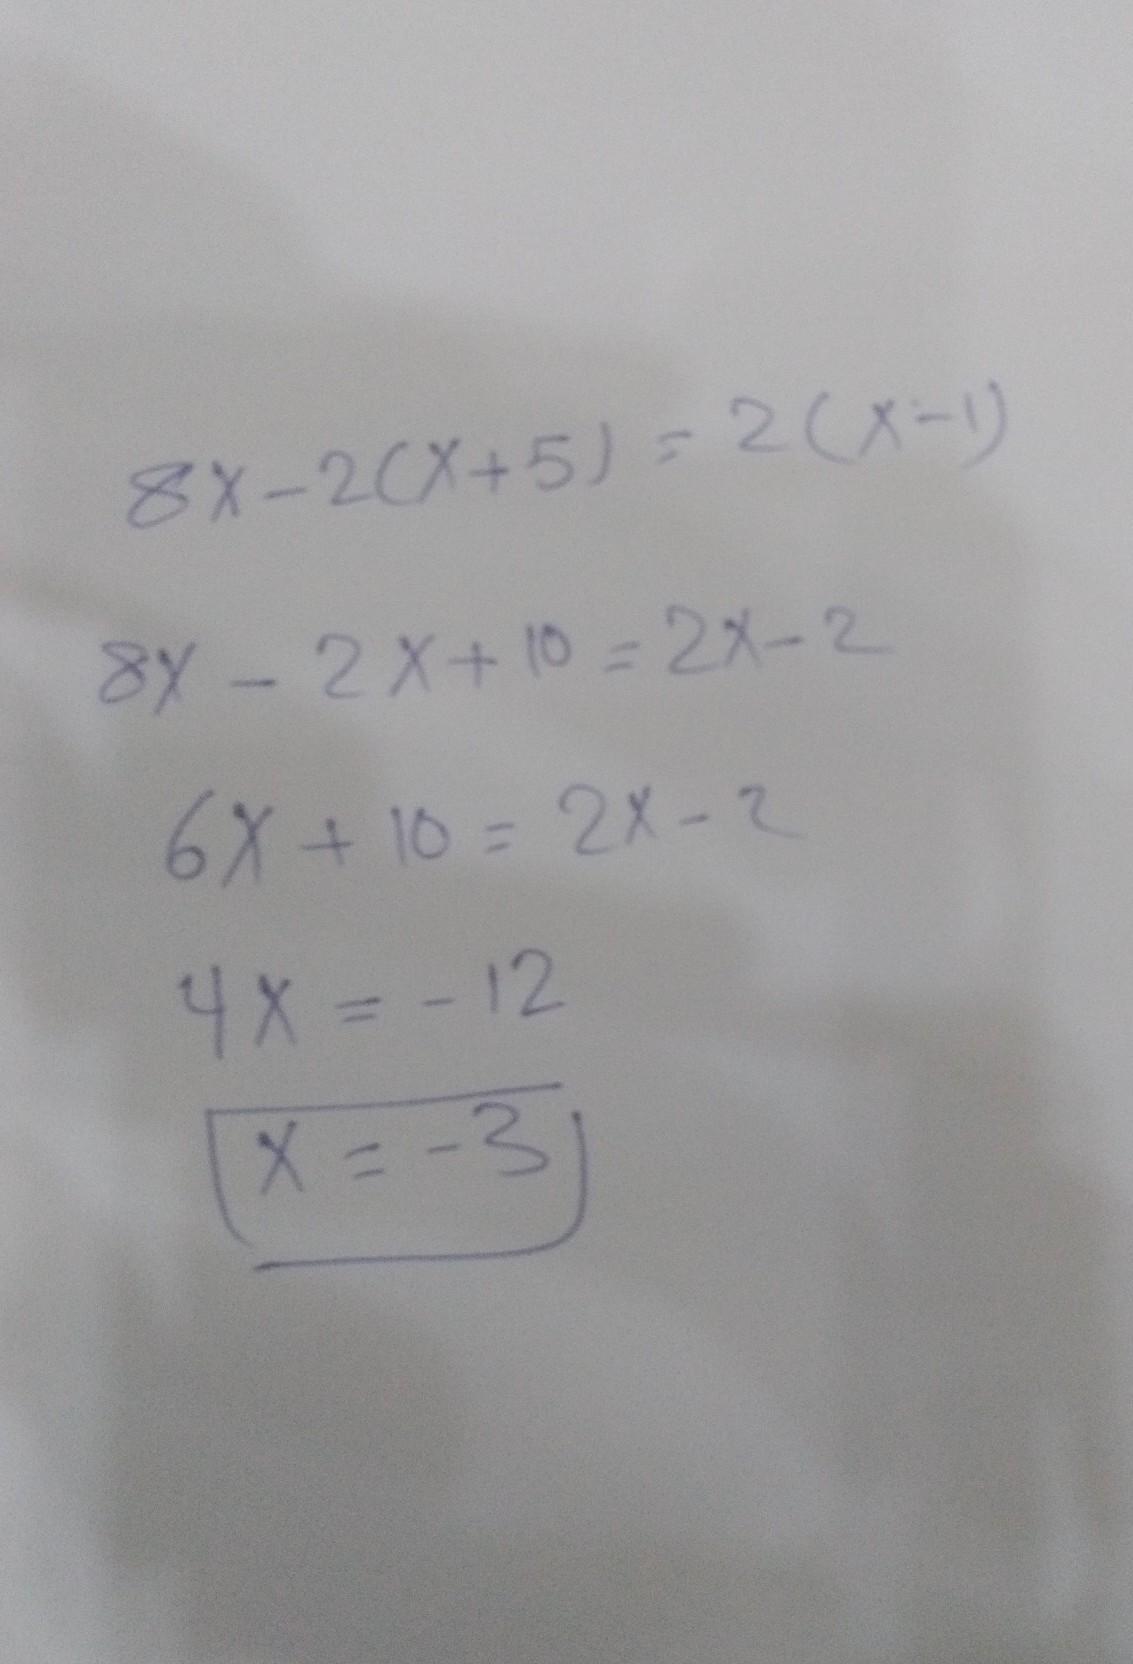 8x-2(x+5) = 2(x-1)
8x - 2x+10 = 2x-2
6x + 10 = 2x-2
4x = -12
x = -3